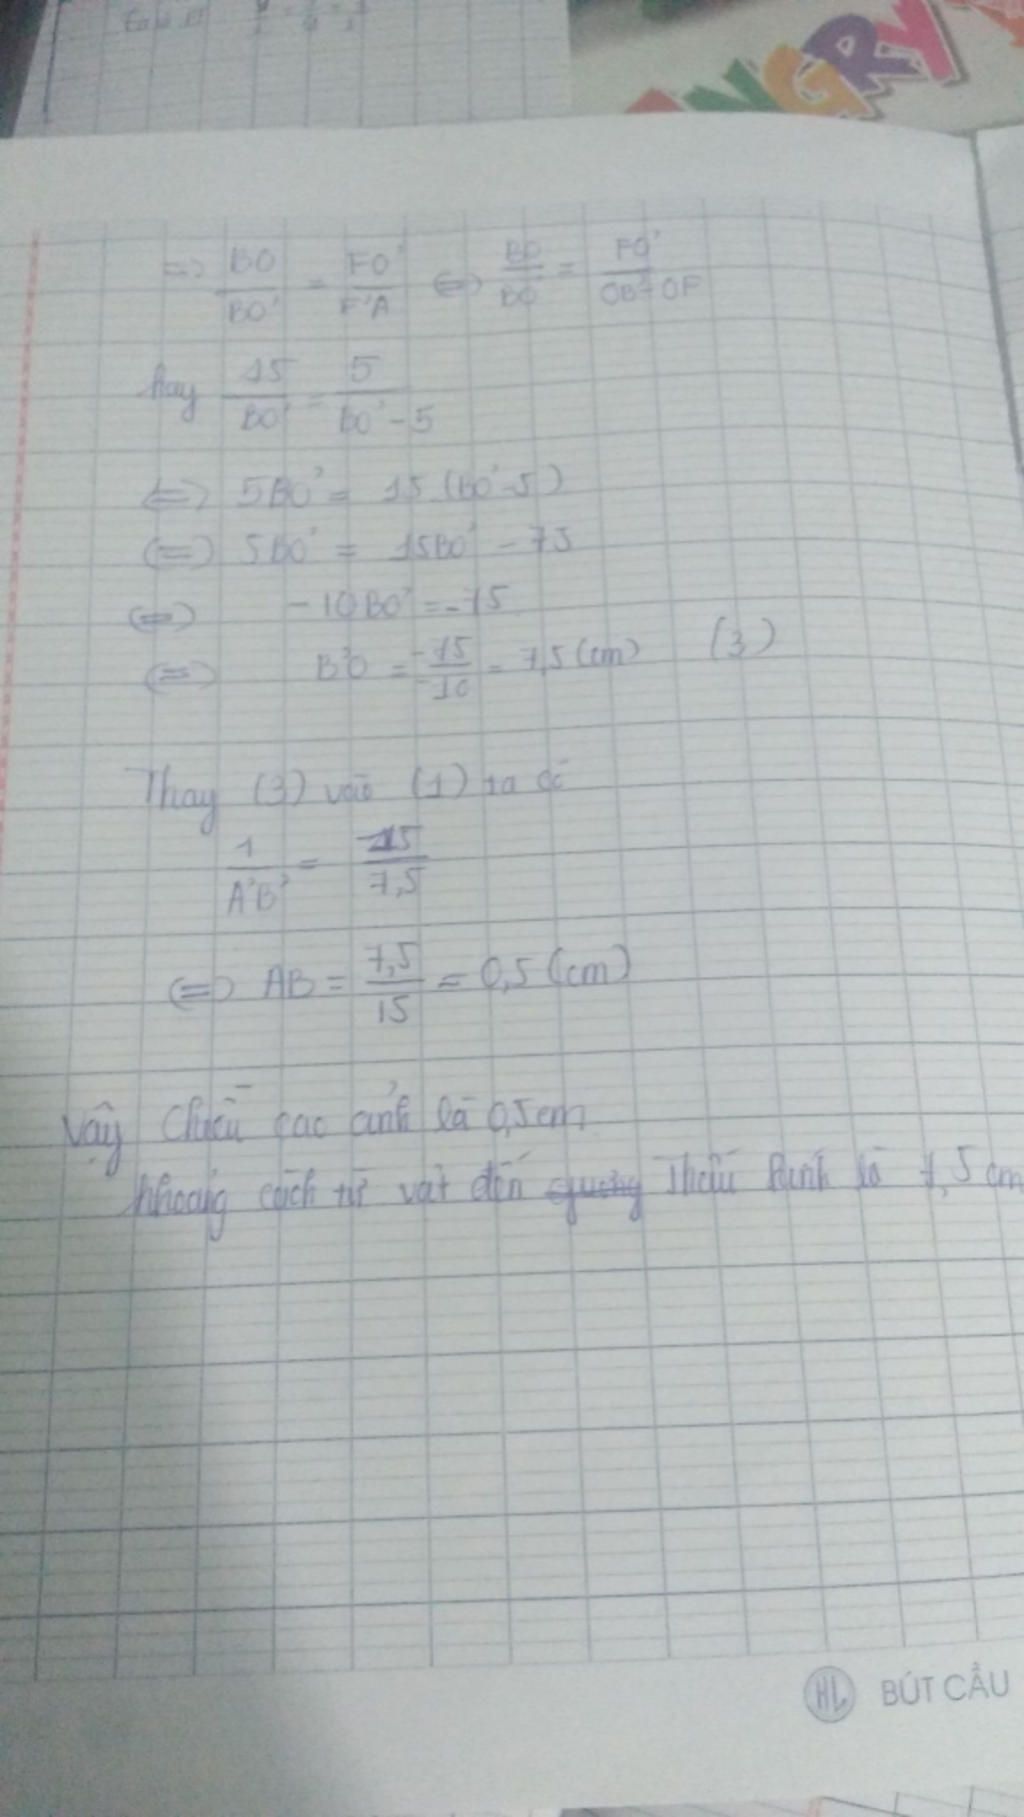 NGRY
=> BO/BO' = FO'/F'A <=> BO/BO' = FO'/OB'-OF
hay 15/BO' = 5/BO'-5
<=> 5BO' = 15.(BO'-5)
<=> 5BO' = 15BO' - 75
<=> -10BO' = -75
<=> B'O = -75/-10 = 7,5 (cm) (3)
Thay (3) vào (1) ta có
1/A'B' = 15/7,5
<=> AB = 7,5/15 = 0,5 (cm)
Vậy chiều cao ảnh là 0,5cm
khoảng cách từ vật đến thấu kính là 7,5 cm
HL BÚT CẦU